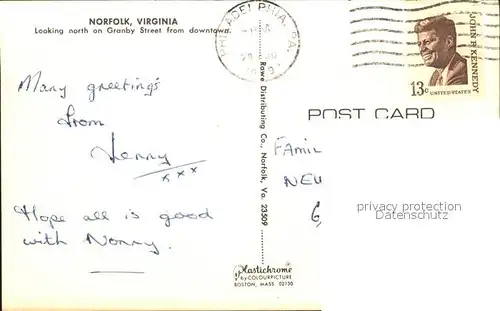 NORFOLK, VIRGINIA
Looking north on Granby Street from downtown.
PHILADELPHIA, PA.
JOHN F. KENNEDY
13c
UNITED STATES
POST CARD
Many greetings
from
Jenny
xxx
Hope all is good
with Nonny.
Rowe Distributing Co., Norfolk, Va. 23509
FAMIL
NEU
privacy protection
Datenschutz
Plastichrome
by COLOURPICTURE
BOSTON, MASS. 02130